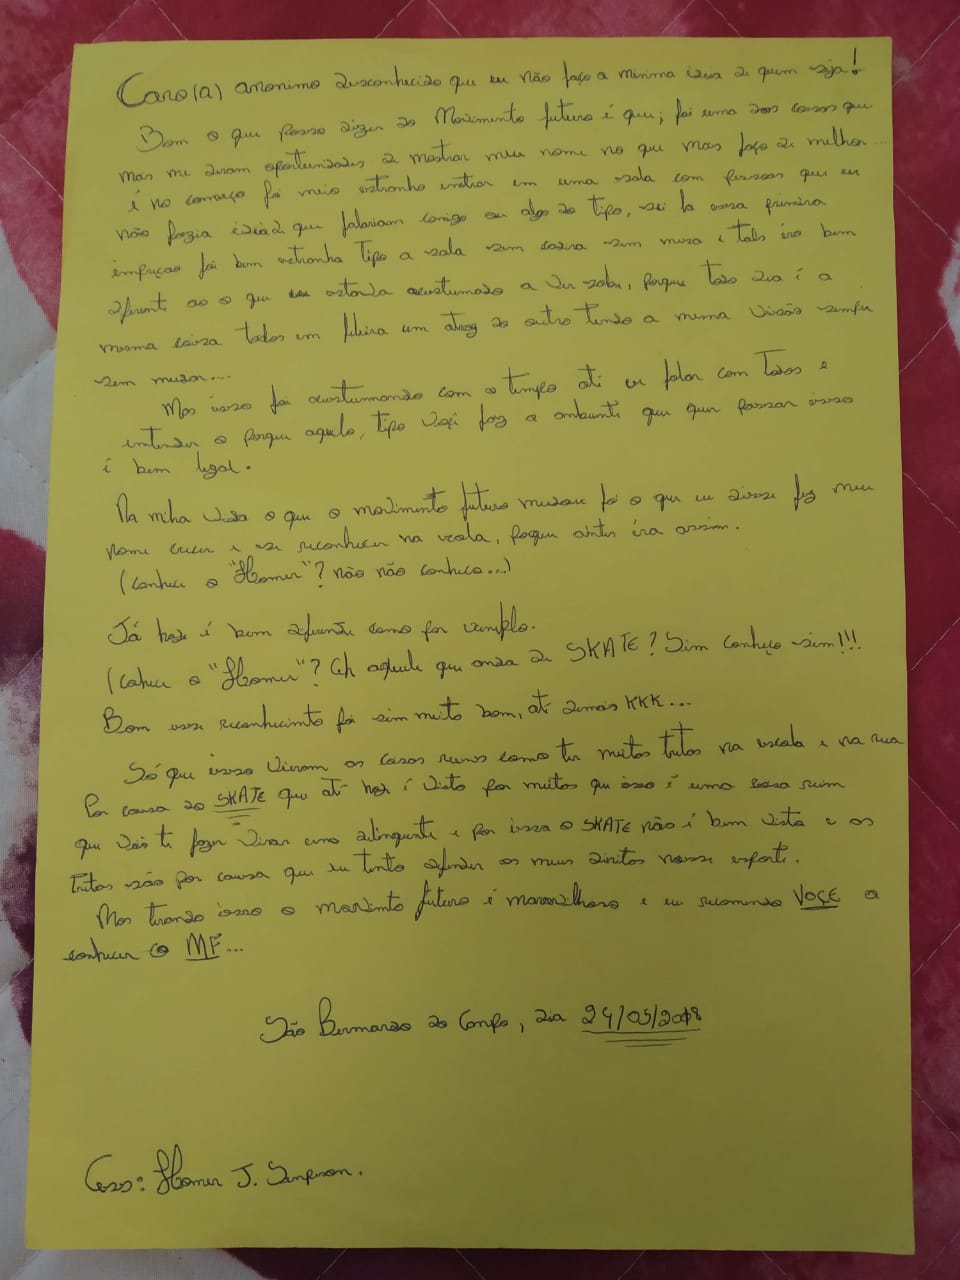 Caro(a) anonimo desconhecido que eu não faço a minima ideia de quem seja!
Bom o que posso dizer do Movimento futuro é que; foi uma das coisas que
mas me deram oportunidades de mostrar meu nome no que mas faço de melhor...
é no começo foi meio estranho entrar em uma sala com pessoas que eu
não fazia ideia que falariam comigo ou algo do tipo, sei la essa primeira
foi bem estranha tipo a sala sem cadeira sem mesa e tals era bem
diferente ao o que estava acustumado a ver sabe, porque todo dia é a
mesma coisa todos em fileira um atras do outro tendo a mesma visão sempre
sem mudar...
Mas isso foi acustumando com o tempo até eu falar com todos e
entender o porque aquilo, tipo você faz o ambiente que quer passar isso
é bem legal.
Na miha vida o que o movimento futuro mudou foi o que eu disse fez meu
nome crecer e se reconhecer na escola, porque antes era assim.
(conhece o "Homer"? não não conheço...)
Já hoje é bem diferente como por exemplo.
(cohece o "Homer"? Ah aquele que anda de SKATE? Sim conheço sim!!!
Bom esse reconhecimto foi sim muito bom, até demais KKK...
Só que isso vieram os casos ruins como ter muitos tretos na escola e na rua
Por causa do SKATE que até hoje é visto por muitos que isso é uma coisa ruim
que vais te fazer virar um delinquente e por isso o SKATE não é bem visto e os
tretos são por causa que eu tento defender os meus direitos nesse esporte.
Mas tirando isso o movimto futuro é maravilhoso e eu recomendo VOÇE a
conhecer o MF...
São Bernardo do Campo, dia 24/05/2018
Homer J. Simpson.